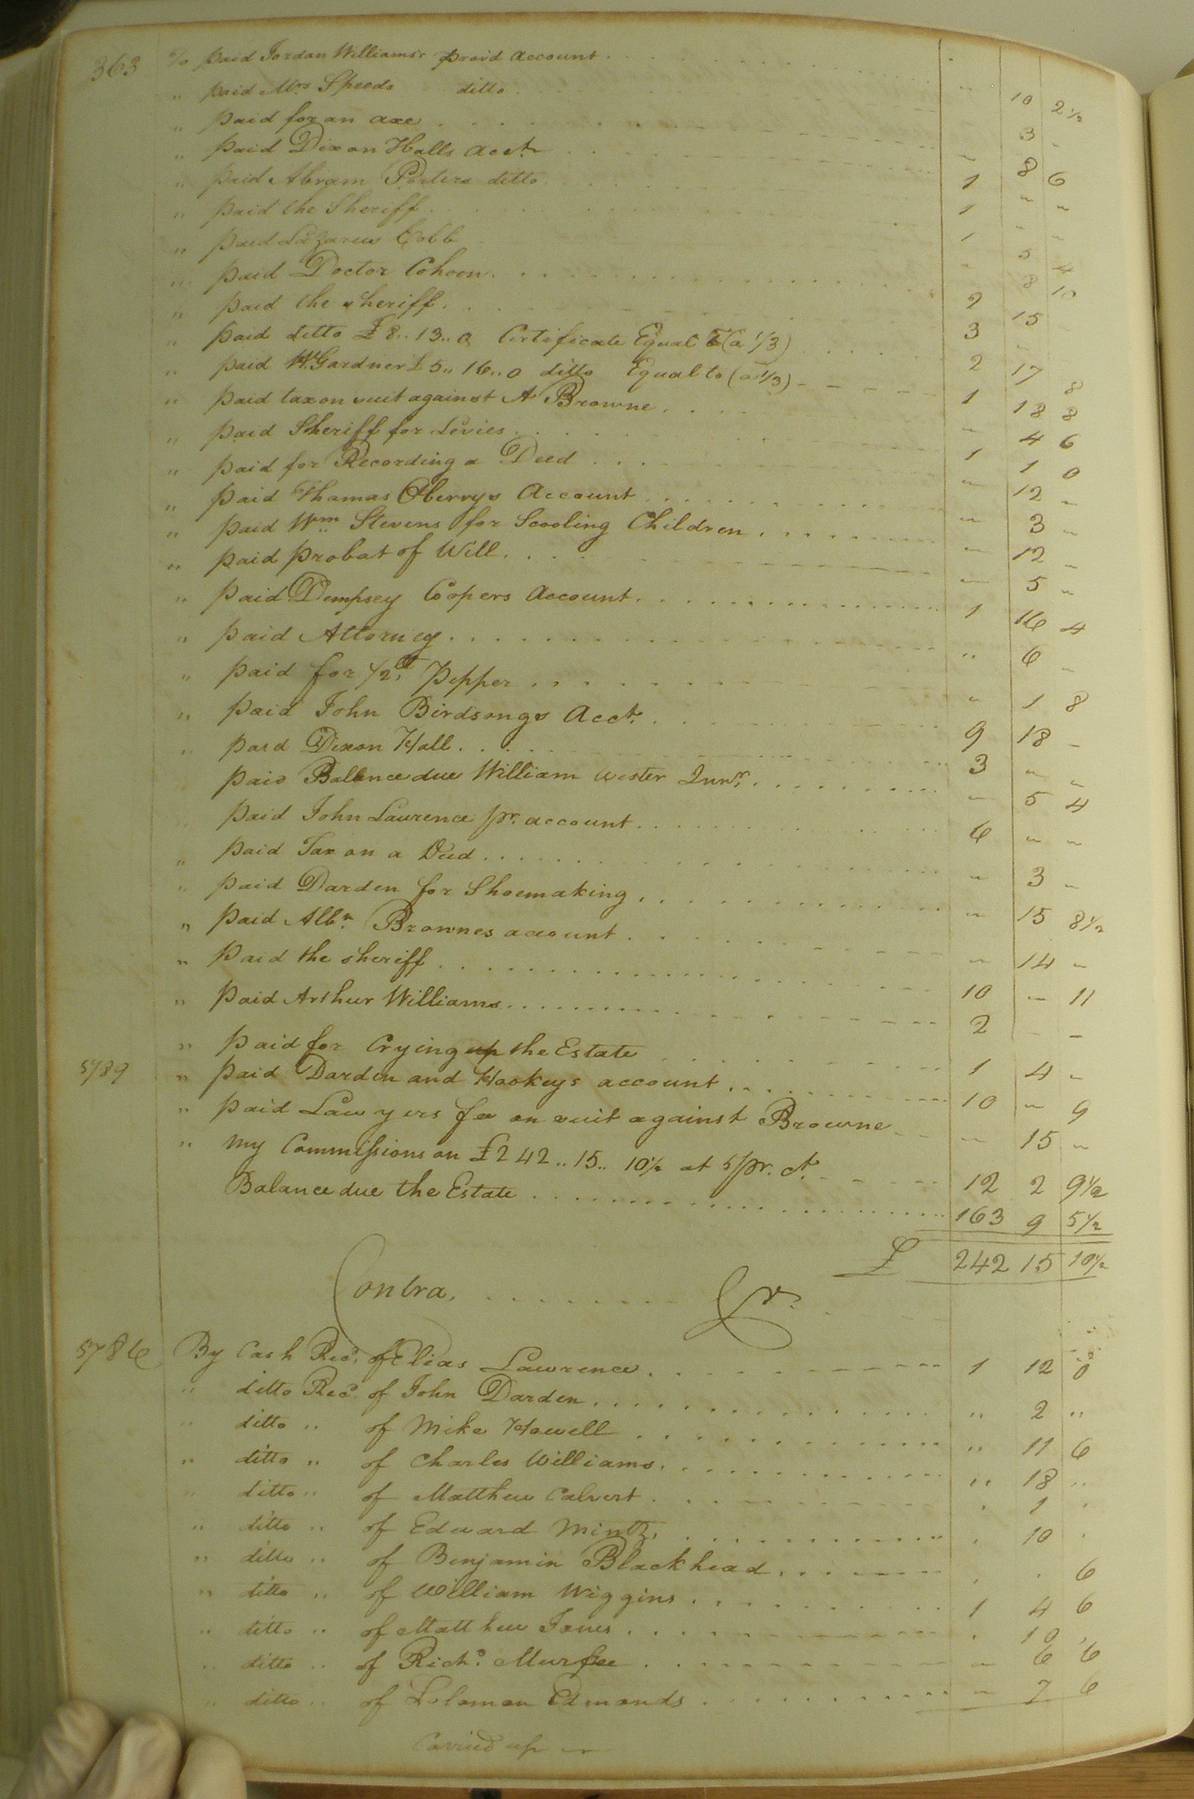 363 To paid Jordan Williams's proved account
" paid Mrs Speeds ditto " 10 2½
" paid for an axe 3 "
" paid Dixon Halls acct " 8 6
" paid Abram Porters ditto 1 " "
" paid the Sheriff 1 " "
" paid Lazarus Cobb 1 5 4
" paid Doctor Cohoon " 8 10
" paid the sheriff 2 15
" paid ditto £8..13..0 Certificate Equal to (a 1/3) 3
" paid W. Gardner £5..16..0 ditto Equal to (a 1/3) 2 17 8
" paid tax on suit against A Browne 1 18 8
" paid Sheriff for Levies " 4 6
" paid for Recording a Deed 1 1 0
" paid Thomas Oberrys Account " 12 "
" paid Wm Stevens for Scooling Children " 3 "
" paid probat of Will " 12 "
" paid Dempsey Coopers Account " 5 "
" paid Attorney 1 16 4
" paid for ½ lb Pepper " 6 "
" paid John Birdsongs Acct. " 1 8
" paid Dixon Hall 9 18 "
paid Ballance due William Wester Junr. 3 " "
paid John Lawrence pr. account " 5 4
" paid Tax on a Deed 6 " "
" paid Darden for Shoemaking " 3 "
" paid Albn. Brownes account " 15 8½
" paid the sheriff " 14 "
" paid Arthur Williams 10 " 11
2 " "
" paid for Crying up the Estate 1 4 "
5789 " paid Darden and Hookeys account 10 " 9
" paid Lawyers fee on suit against Browne " 15 "
" my Commissions on £242..15..10½ at 5 pr. ct. 12 2 9½
Balance due the Estate 163 9 5½
£ 242 15 10½
Contra. Cr.
5786 By Cash Recd. of Elias Lawrence 1 12 0
" ditto Recd. of John Darden " 2 "
" ditto " of Mike Howell " 11 6
" ditto " of Charles Williams " 18 "
" ditto " of Matthew Calvert " 1 "
" ditto " of Edward Mintz " 10 "
" ditto " of Benjamin Blackhead . . 6
" ditto " of William Wiggins 1 4 6
" ditto " of Matthew Jones . 10 .
" ditto " of Richd. Murfee " 6 6
" ditto " of Solomon Edmonds " 7 6
Carried up